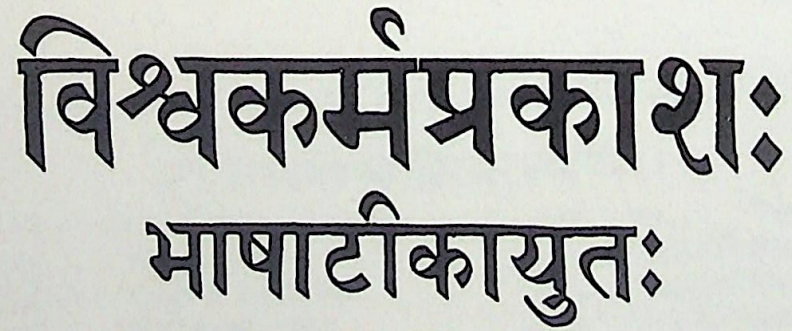 विश्वकर्मप्रकाशः
भाषाटीकायुतः